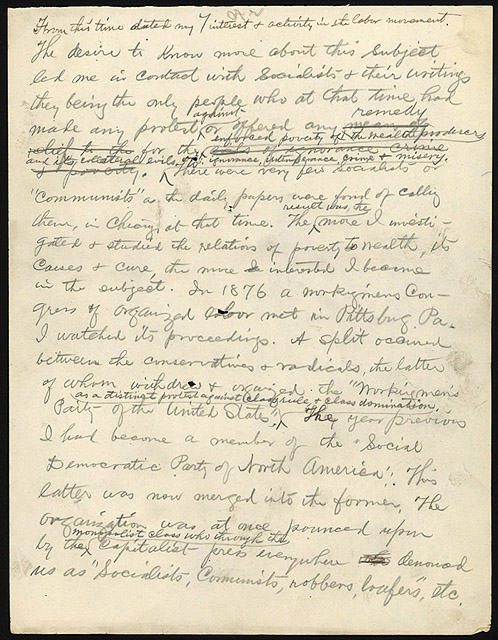 From this time dated my interest & activity in the labor movement.
The desire to know more about this subject
led me in contact with Socialists & their writings
they being the only people who at that time had
against remedy
made any protest or offered any means of
enforced poverty of the wealth producers
relief to the for the acts of ignorance crime
and its collateral evils, ignorance, intemperance, crime & misery.
& poverty. There were very few Socialists or
"Communists" as the daily papers were fond of calling
result was, the
them, in Chicago at that time. The more I investi-
gated & studied the relations of poverty to wealth, its
causes & cure, the more interested I became
in the subject. In 1876 a workingmens Con-
gress of organized labor met in Pittsburg Pa.
I watched its proceedings. A split occurred
between the conservatives & radicals, the latter
of whom withdrew & organized the "Workingmen's
as a distinct protest against class rule & class domination.
Party of the United States." The year previous
I had become a member of the "Social
Democratic Party of North America". This
latter was now merged into the former. The
organization was at once pounced upon
monopolist class who through the
by the Capitalist press everywhere denounced
us as "Socialists, Communists, robbers, loafers", etc.